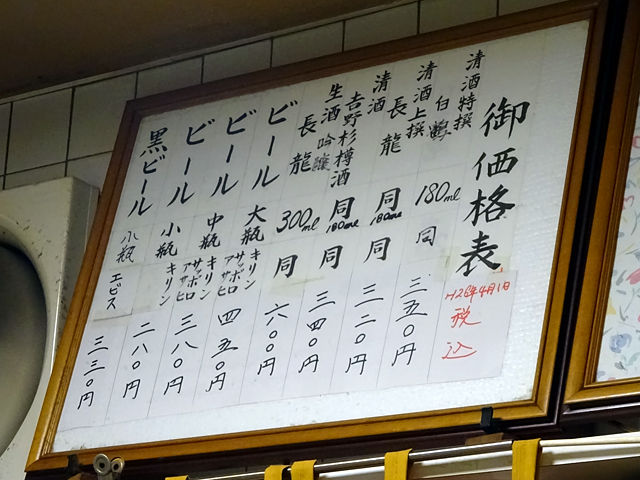 御価格表
H26年4月1日
税込
清酒特撰
白鶴
180ml
同
三五〇円
清酒上撰
長龍
同
180ml
同
三二〇円
清酒
吉野杉樽酒
同
180ml
同
三四〇円
生酒
吟醸
長龍
300ml
同
六〇〇円
ビール
大瓶
キリン
サッポロ
アサヒ
四五〇円
ビール
中瓶
キリン
サッポロ
アサヒ
三八〇円
ビール
小瓶
キリン
二八〇円
黒ビール
小瓶
エビス
三三〇円